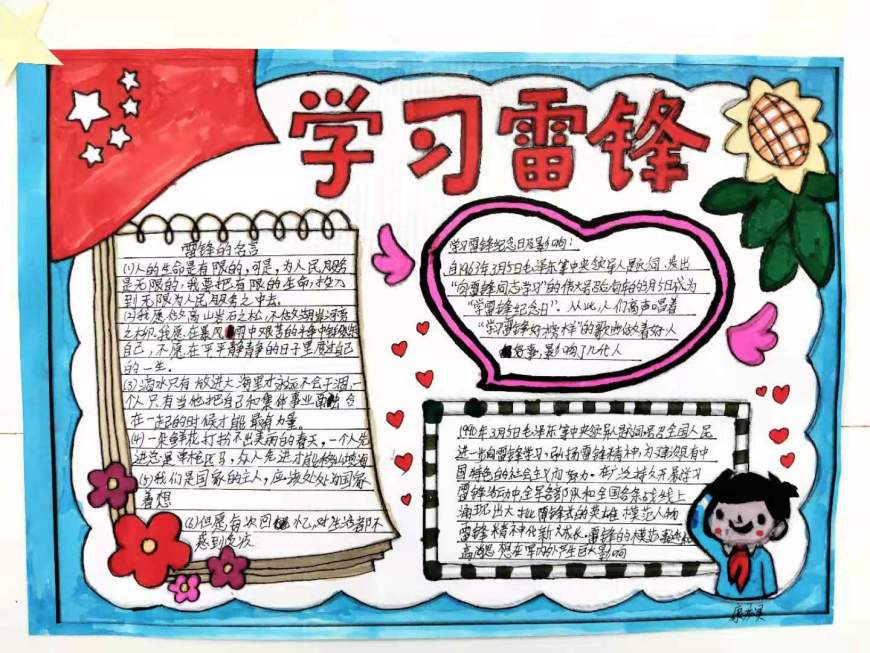 学习雷锋
雷锋的名言
(1)人的生命是有限的,可是,为人民服务
是无限的,我要把有限的生命,投入
到无限为人民服务之中去。
(2)我愿做高山岩石之松,不做湖岸河旁
之柳。我愿在暴风雨中艰苦的斗争中锻炼
自己,不愿在平平静静的日子里度过自己
的一生。
(3)滴水只有放进大海里才永远不会干涸,一
个人只有当他把自己和集体事业融合
在一起的时候才能最有力量。
(4)一朵鲜花打扮不出美丽的春天,一个人先
进总是单枪匹马,众人先进才能移山填海
(5)我们是国家的主人,应当处处为国家
着想
(6)但愿每次回忆,对生活都不
感到负疚
学习雷锋纪念日及影响:
自1963年3月5日毛泽东等中央领导人题词,发出
“向雷锋同志学习”的伟大号召后每年的3月5日成为
“学雷锋纪念日”。从此,人们高声唱着
“学习雷锋好榜样”的歌曲做着好人
好事,影响了几代人
1990年3月5日毛泽东等中央领导人题词号召全国人民
进一步向雷锋学习,弘扬雷锋精神,为建设有中
国特色的社会主义而努力。在广泛持久开展学习
雷锋活动中,全军各部队和全国各条战线上
涌现出大批雷锋式的英雄模范人物
雷锋精神化新人成长。雷锋的模范事迹和
高尚思想在军内外产生巨大影响